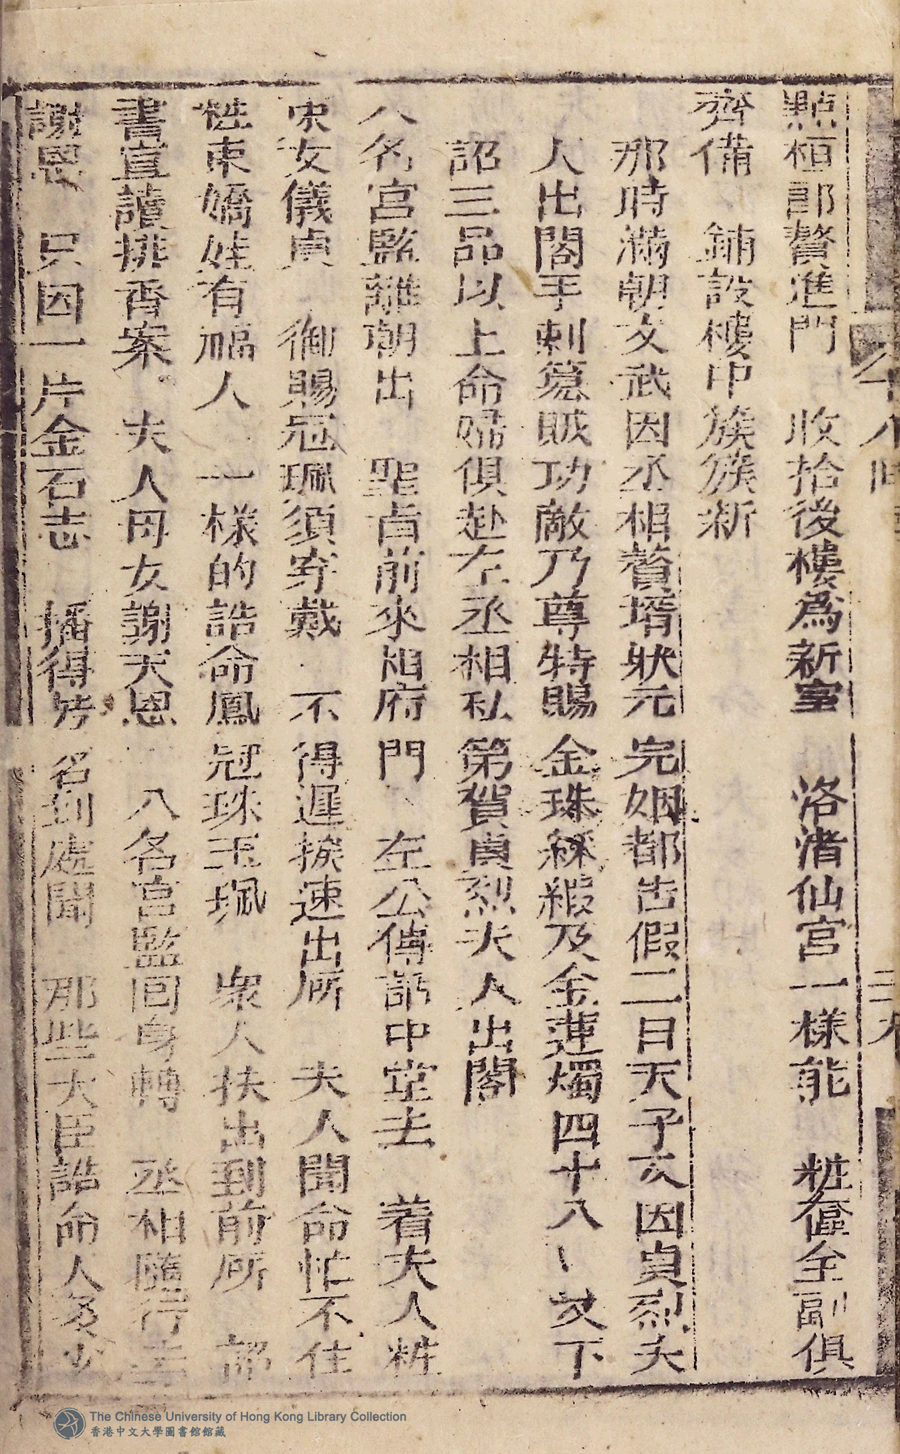 點桓郎贅進門　收拾後樓爲新室　洛渚仙宮一樣能　粧奩全副俱
齊備　鋪設樓中簇簇新
那時滿朝文武因丞相贅壻狀元完姻都告假二日天子又因貞烈夫
人出閣手剌冦賊功敵乃尊特賜金珠綵緞及金蓮燭四十八丶又下
詔三品以上命婦俱赴左丞相私第賀貞烈夫人出閣
八名宮監離朝出　聖旨前來相府門　左公傳諭中堂去　着夫人粧
束女儀貞　御賜冠珮須穿戴　不得遲挨速出所　夫人聞命忙不住
粧束嬌娃有福人　一樣的誥命鳳冠珠玉珮　衆人扶出到前所　詔
書宣讀排香案　夫人母女謝天恩　八名宮監回身轉　丞相隨行去
謝恩　只因一片金石志　播得芳名到處聞　那些大臣誥命人多少
The Chinese University of Hong Kong Library Collection
香港中文大學圖書館館藏